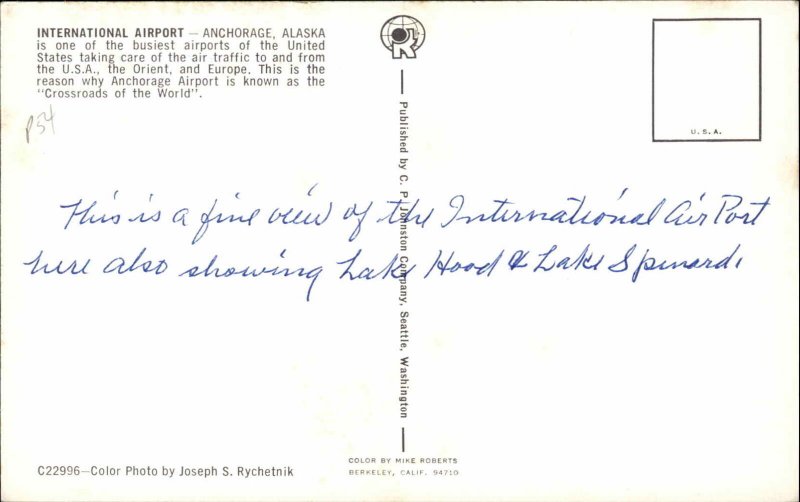 INTERNATIONAL AIRPORT – ANCHORAGE, ALASKA
is one of the busiest airports of the United
States taking care of the air traffic to and from
the U.S.A., the Orient, and Europe. This is the
reason why Anchorage Airport is known as the
"Crossroads of the World".
p54
R
U.S.A.
This is a fine view of the International Air Port
here also showing Lake Hood & Lake Spenard.
Published by C. P. Johnston Company, Seattle, Washington
COLOR BY MIKE ROBERTS
BERKELEY, CALIF. 94710
C22996—Color Photo by Joseph S. Rychetnik